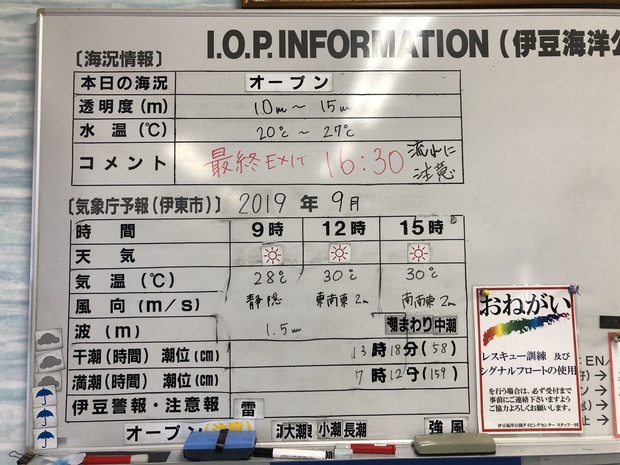 I.O.P.INFORMATION（伊豆海洋公
〔海況情報〕
本日の海況 オープン
透明度(m) 10m～15m
水温(℃) 20℃～27℃
コメント 最終EXIT 16:30 流れに注意
〔気象庁予報(伊東市)〕2019年9月
時間 9時 12時 15時
天気
気温(℃) 28℃ 30℃ 30℃
風向(m/s) 静穏 東南東2m 南南東2m
波(m) 1.5m 潮まわり中潮
干潮(時間)潮位(cm) 13時18分(58)
満潮(時間)潮位(cm) 7時12分(159)
伊豆警報・注意報 雷
オープン(注意) 大潮 小潮長潮 強風
おねがい
レスキュー訓練 及び
シグナルフロートの使用
を行う場合は、必ず受付まで
事前にご連絡下さいますよう
ご協力よろしくお願いします。
伊豆海洋公園ダイビングセンター スタッフ一同
EN/